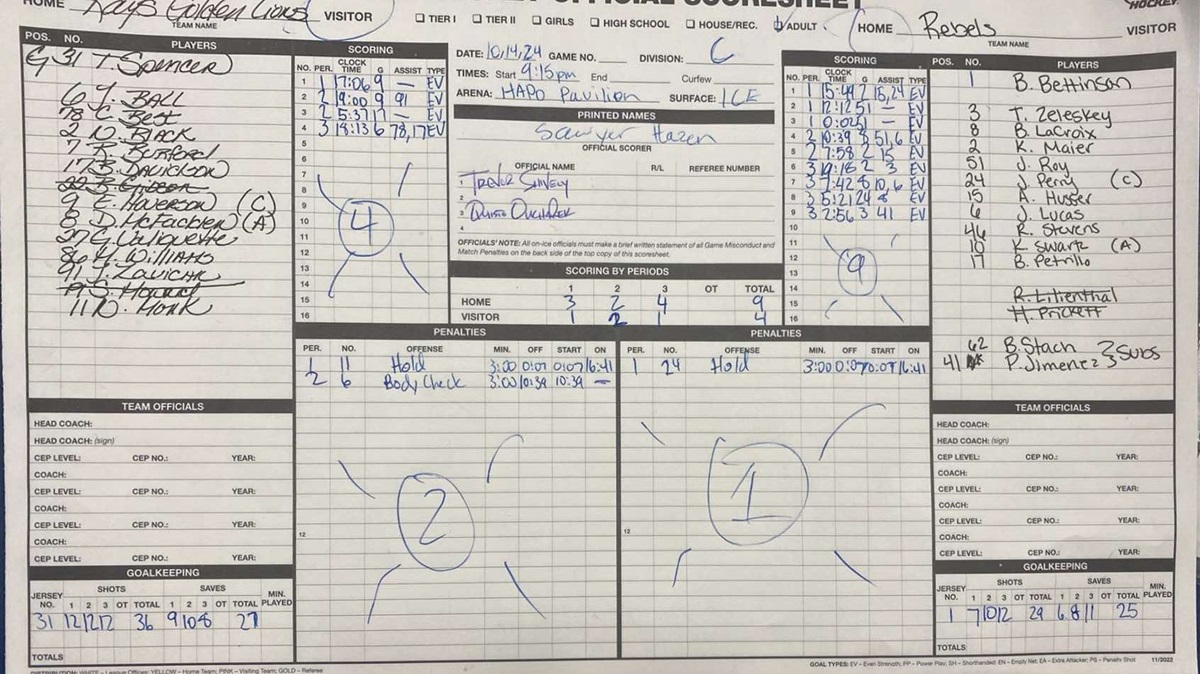 OFFICIAL SCORESHEET
HOCKEY
HOME Kays Golden Lions VISITOR
TEAM NAME
TIER I TIER II GIRLS HIGH SCHOOL HOUSE/REC. ADULT
HOME Rebels VISITOR
TEAM NAME
POS. NO. PLAYERS
G 31 T. SPENCER
6 J. BALL
78 C. Best
2 N. BLACK
7 R. Burford
17 B. DAVIDSON
9 E. HAVERSON (C)
8 D. McFADDEN (A)
27 G. Valiquette
86 H. WILLIAMS
91 J. Zavichak
19 S. Howard
11 N. MONK
SCORING
NO. PER. CLOCK TIME G ASSIST TYPE
1 1 17:06 9 — EV
2 2 19:00 9 91 EV
3 2 5:37 17 — EV
4 3 18:13 6 78,17 EV
5
6
7
8
9
10
11
12
13
14
15
16
4
DATE: 10/14/24 GAME NO. DIVISION: C
TIMES: Start 9:15pm End Curfew
ARENA: HAPO Pavilion SURFACE: ICE
PRINTED NAMES
Sawyer Hazen
OFFICIAL SCORER
OFFICIAL NAME R/L REFEREE NUMBER
1 TREVOR
2
3
4
OFFICIALS' NOTE: All on-ice officials must make a brief written statement of all Game Misconduct and
Match Penalties on the back side of the top copy of this scoresheet.
SCORING BY PERIODS
1 2 3 OT TOTAL
HOME 3 2 4 9
VISITOR 1 2 1 4
SCORING
NO. PER. CLOCK TIME G ASSIST TYPE
1 1 15:49 2 15,24 EV
2 1 12:12 51 — EV
3 1 0:02 51 — EV
4 2 10:39 8 51,6 EV
5 2 7:58 2 15 EV
6 3 19:16 2 3 EV
7 3 7:42 8 10,6 EV
8 3 5:21 24 8 EV
9 3 2:56 3 41 EV
10
11
12
13
14
15
16
9
POS. NO. PLAYERS
1 B. Bettinson
3 T. Zeleskey
8 B. LaCroix
2 K. Maier
51 J. Roy
24 J. Perry (C)
15 A. Husser
6 J. Lucas
46 R. Stevens
10 K. Swartz (A)
17 B. Petrillo
R. Lilienthal
H. Prickett
62 B. Stach
41 P. Jimenez
Subs
PENALTIES
PER. NO. OFFENSE MIN. OFF START ON
1 11 Hold 3:00 0:07 0:07 16:41
2 6 Body Check 3:00 10:39 10:39 —
12
2
PENALTIES
PER. NO. OFFENSE MIN. OFF START ON
1 24 Hold 3:00 0:07 0:07 16:41
12
1
TEAM OFFICIALS
HEAD COACH:
HEAD COACH: (sign)
CEP LEVEL: CEP NO.: YEAR:
COACH:
CEP LEVEL: CEP NO.: YEAR:
COACH:
CEP LEVEL: CEP NO.: YEAR:
COACH:
CEP LEVEL: CEP NO.: YEAR:
GOALKEEPING
SHOTS SAVES
JERSEY NO. 1 2 3 OT TOTAL 1 2 3 OT TOTAL MIN. PLAYED
31 12 12 12 36 9 10 8 27
TOTALS
TEAM OFFICIALS
HEAD COACH:
HEAD COACH: (sign)
CEP LEVEL: CEP NO.: YEAR:
COACH:
CEP LEVEL: CEP NO.: YEAR:
COACH:
CEP LEVEL: CEP NO.: YEAR:
COACH:
CEP LEVEL: CEP NO.: YEAR:
GOALKEEPING
SHOTS SAVES
JERSEY NO. 1 2 3 OT TOTAL 1 2 3 OT TOTAL MIN. PLAYED
1 7 10 12 29 6 8 11 25
TOTALS
DISTRIBUTION: WHITE – League Offices; YELLOW – Home Team; PINK – Visiting Team; GOLD – Referee
GOAL TYPES: EV – Even Strength; PP – Power Play; SH – Shorthanded; EN – Empty Net; EA – Extra Attacker; PS – Penalty Shot 11/2022